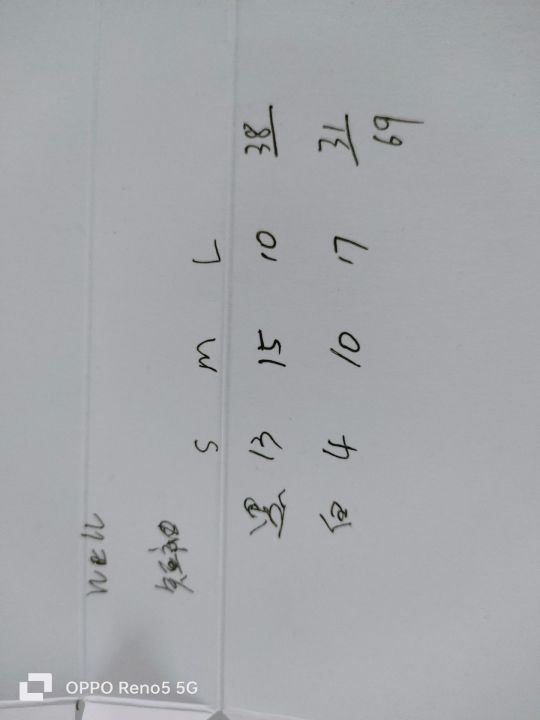 Well
S M L
13 15 10 38
白 4 10 17 31
69
OPPO Reno5 5G